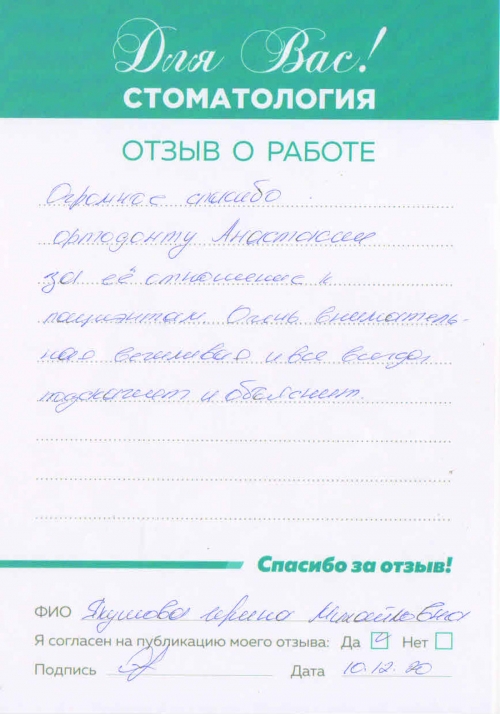 Для Вас!
СТОМАТОЛОГИЯ
ОТЗЫВ О РАБОТЕ
Огромное спасибо
ортодонту Анастасии
за её отношение к
пациентам. Очень вниматель-
ная вежливая и все всегда
подскажет и объяснит.
Спасибо за отзыв!
ФИО Ирина Михайловна
Я согласен на публикацию моего отзыва: Да Нет
Подпись Дата 10.12.20